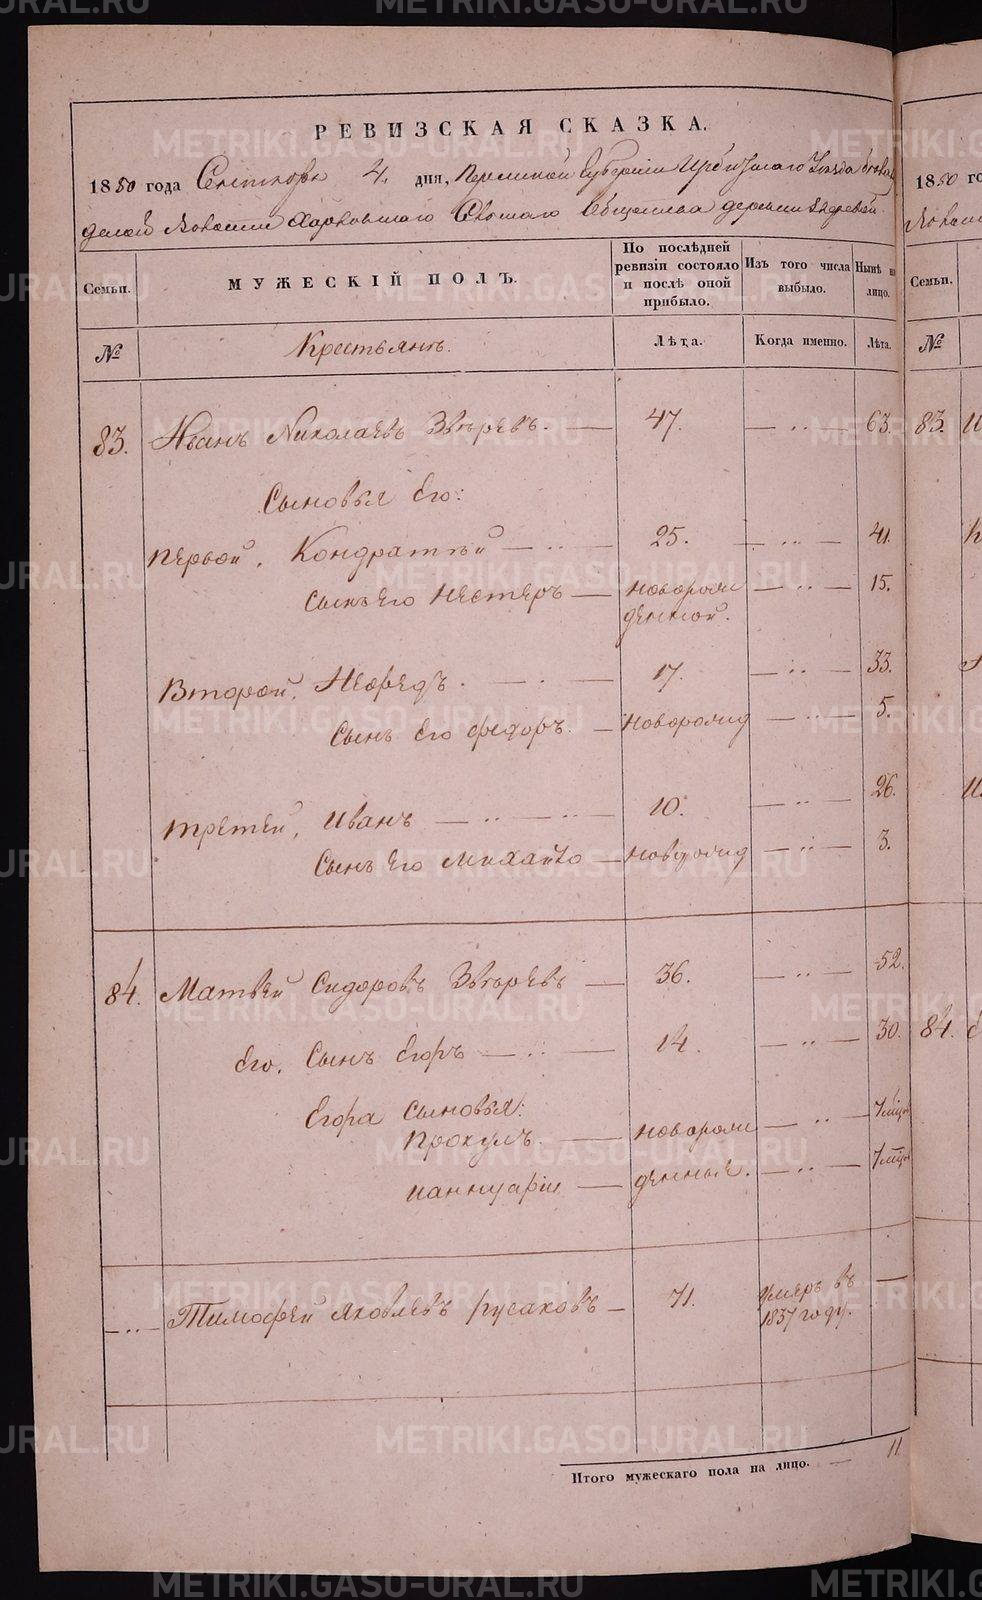 METRIKI.GASO-URAL.RU
РЕВИЗСКАЯ СКАЗКА.
1850 года Сентября 4. дня, Пермской Губернии Ирбитскаго Уезда
Харловскаго Сельскаго Общества деревни Зверевой.
1850 го
Семьи.
МУЖЕСКІЙ ПОЛЪ.
По послѣдней ревизіи состояло и послѣ оной прибыло.
Изъ того числа выбыло.
Нынѣ на лицо.
Семьи.
№
Крестьянъ.
Лѣта.
Когда именно.
Лѣта.
№
83. Иванъ Николаевъ Звѣревъ. — 47. — „ — 63. 83. И
Сыновья Его:
Первой, Кондратій — „ — 25. — „ — 41.
Сынъ Его Нестеръ — новорож — „ — 15.
денной.
Второй, Неѳредъ. — 17. — „ — 33.
Сынъ Его Федоръ. — Новорожд — „ — 5.
третей, Иванъ — „ — „ — 10. — „ — 26.
Сынъ Его Михайло — новорожд — „ — 3.
84. Матвѣй Сидоровъ Звѣревъ — 36. — „ — 52.
Его, Сынъ Егоръ — „ — 14. — „ — 30. 84. Е
Егора Сыновья:
Прокулъ. — новорож — „ — 7 мѣс
ианнуарій — денные. — „ — 7 мѣс
— „ — Тимофей Яковлевъ Русаковъ — 71. Умеръ въ —
1837 году.
Итого мужескаго пола на лицо. — 11